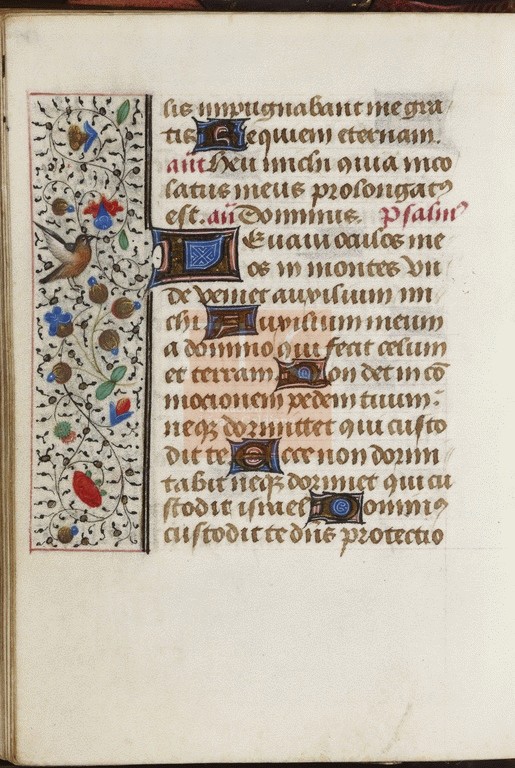 lis impugnabant me gra
tis Requiem eternam.
añt Heu michi quia inco
latus meus prolongatꝰ
est. añ Dominus. Psalmꝰ
Leuaui oculos me
os in montes vn
de veniet auxilium mi
chi Auxilium meum
a domino qui fecit celum
et terram Non det in cō
mocionem pedem tuum:
neqꝫ dormittet qui custo
dit te Ecce non dormi
tabit neqꝫ dormiet qui cu
stodit israel Dominꝰ
custodit te dn̄s protectio